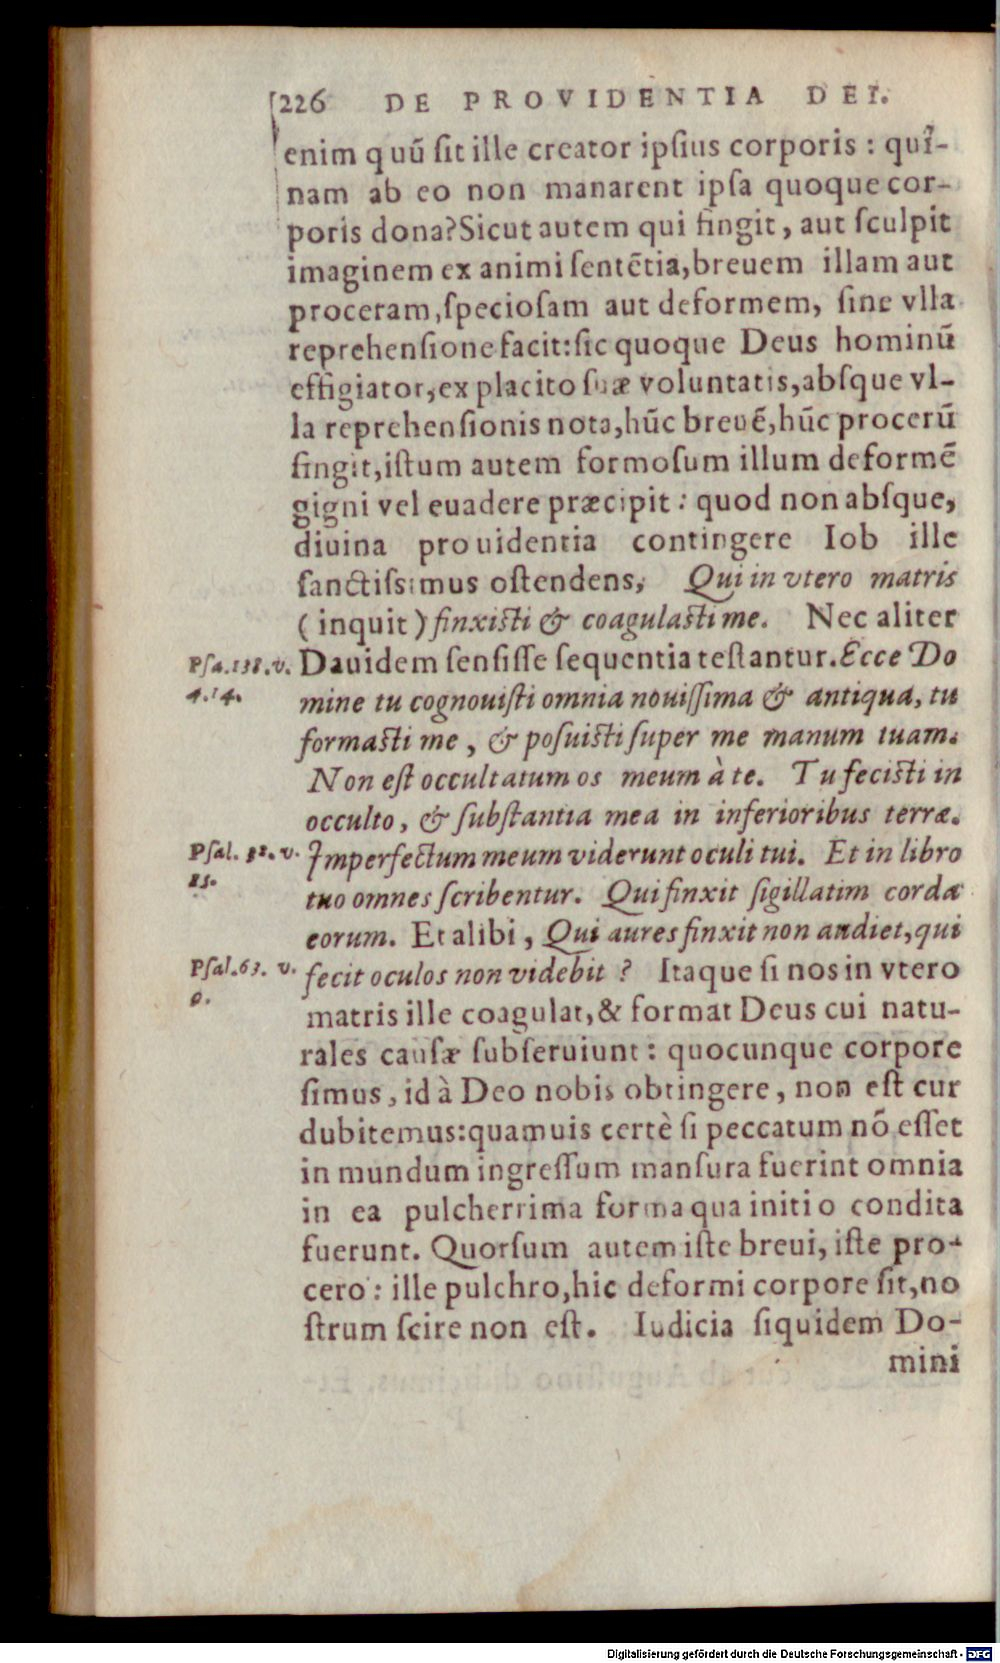 226 DE PROVIDENTIA DEI.
enim quũ ſit ille creator ipſius corporis : quî-
nam ab eo non manarent ipſa quoque cor-
poris dona?Sicut autem qui fingit, aut ſculpit
imaginem ex animi ſentẽtia,breuem illam aut
proceram,ſpecioſam aut deformem, ſine vlla
reprehenſione facit:ſic quoque Deus hominũ
effigiator,ex placito ſuæ voluntatis,abſque vl-
la reprehenſionis nota,hũc breuẽ,hũc procerũ
fingit,iſtum autem formoſum illum deformẽ
gigni vel euadere præcipit : quod non abſque,
diuina prouidentia contingere Iob ille
ſanctiſsimus oſtendens, Qui in vtero matris
(inquit) finxiſti & coagulaſti me. Nec aliter
Pſa.138.v. Dauidem ſenſiſſe ſequentia teſtantur.Ecce Do
4.14. mine tu cognouiſti omnia nouiſſima & antiqua, tu
formaſti me, & poſuiſti ſuper me manum tuam.
Non eſt occultatum os meum à te. Tu feciſti in
occulto, & ſubſtantia mea in inferioribus terræ.
Pſal. 32. v. Imperfectum meum viderunt oculi tui. Et in libro
15. tuo omnes ſcribentur. Qui finxit ſigillatim corda
eorum. Et alibi, Qui aures finxit non audiet,qui
Pſal.63. v. fecit oculos non videbit ? Itaque ſi nos in vtero
9. matris ille coagulat,& format Deus cui natu-
rales cauſæ ſubſeruiunt : quocunque corpore
ſimus, id à Deo nobis obtingere, non eſt cur
dubitemus:quamuis certè ſi peccatum nõ eſſet
in mundum ingreſſum manſura fuerint omnia
in ea pulcherrima forma qua initio condita
fuerunt. Quorſum autem iſte breui, iſte pro-
cero : ille pulchro,hic deformi corpore ſit,no
ſtrum ſcire non eſt. Iudicia ſiquidem Do-
mini
Digitalisierung gefördert durch die Deutsche Forschungsgemeinschaft - DFG